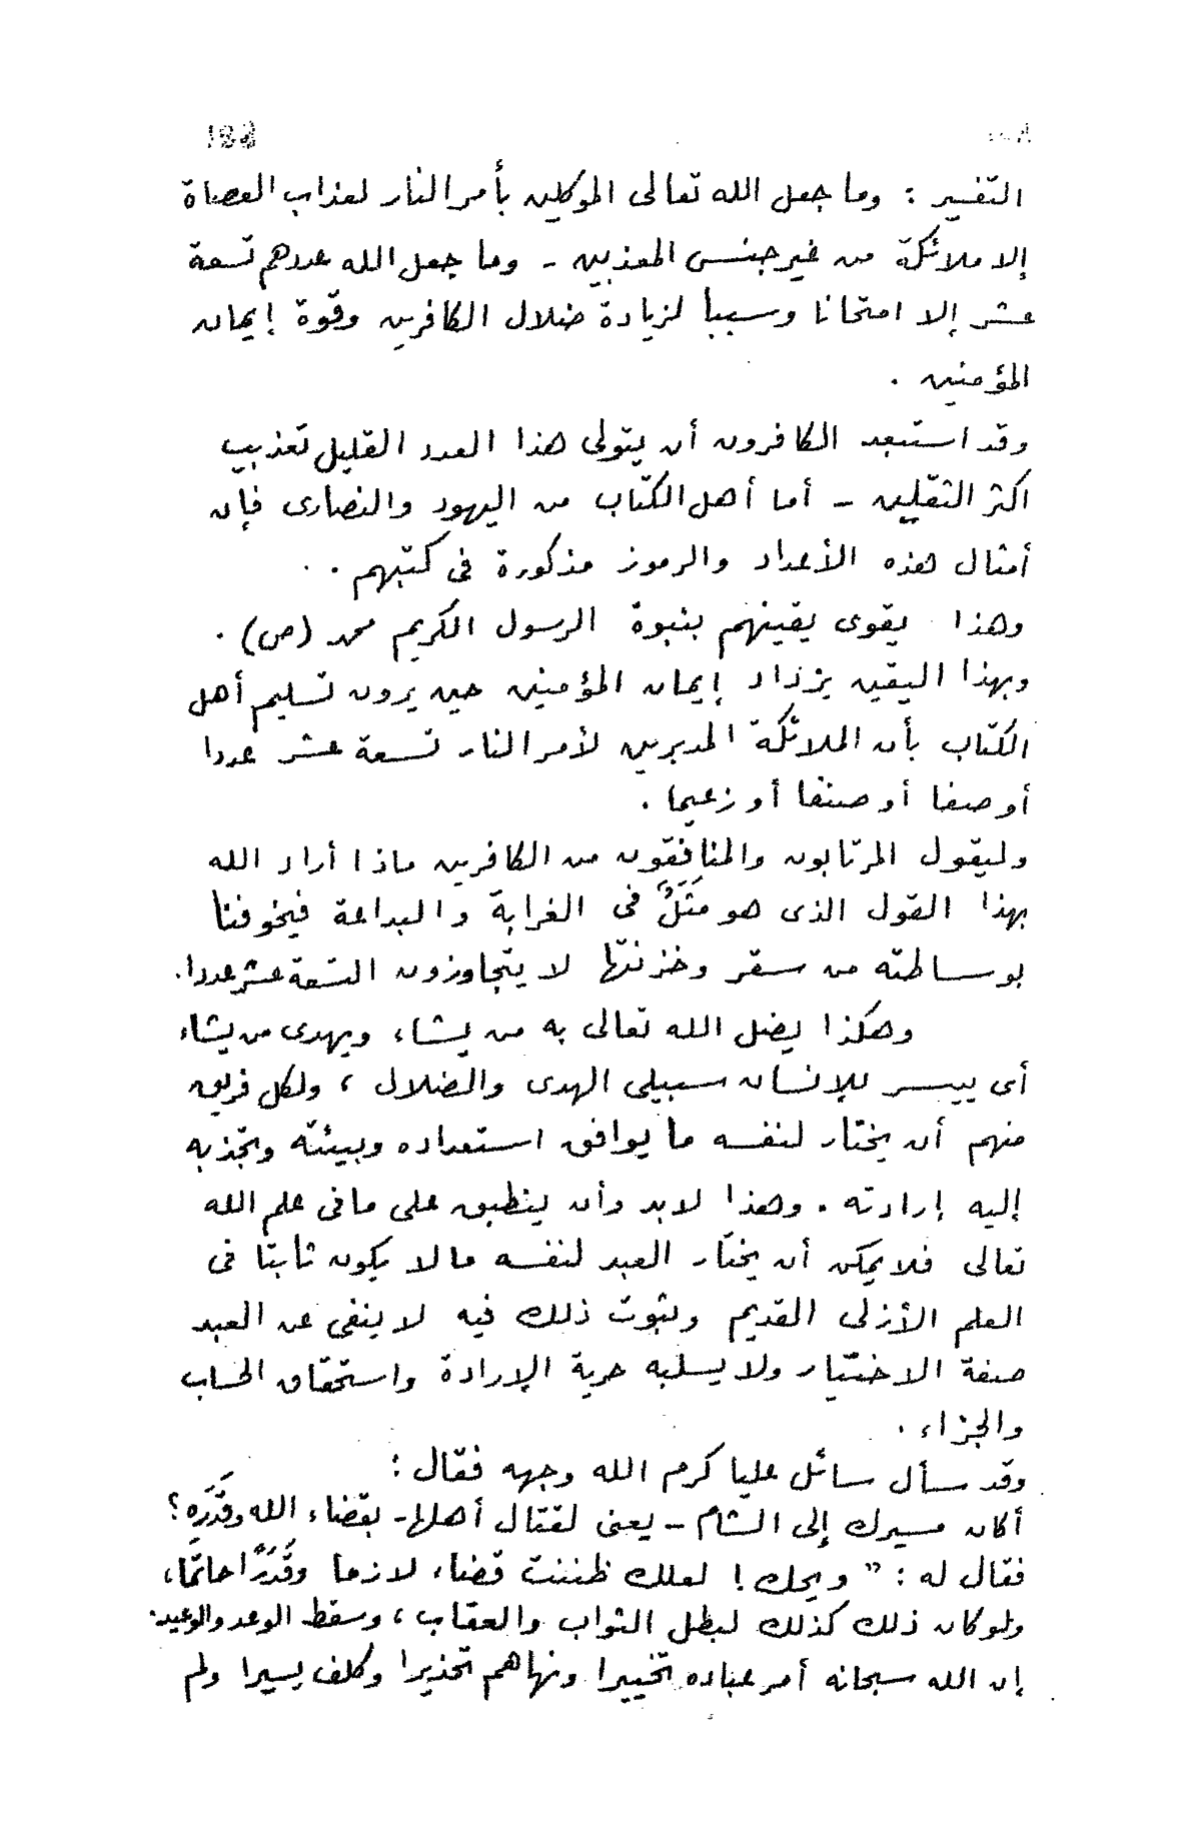 التفسير : وما جعل الله تعالى الموكلين بأمر النار لعذاب العصاة
إلا ملائكة من غير جنس المعذبين - وما جعل الله عددهم تسعة
عشر إلا امتحانا وسببا لزيادة ضلال الكافرين وقوة إيمان
المؤمنين .
وقد استبعد الكافرون أن يتولى هذا العدد القليل تعذيب
اكثر الثقلين - أما أهل الكتاب من اليهود والنصارى فإن
أمثال هذه الأعداد والرموز مذكورة فى كتبهم . .
وهذا يقوى يقينهم بنبوة الرسول الكريم محمد (ص) .
وبهذا اليقين يزداد إيمان المؤمنين حين يرون تسليم أهل
الكتاب بأن الملائكة المدبرين لأمر النار تسعة عشر عددا
أو صفا أو صنفا أو زعيما .
وليقول المرتابون والمنافقون من الكافرين ماذا أراد الله
بهذا القول الذى هو مَثَلٌ فى الغرابة والبداعة فيخوفنا
بوساطته من سقر وخزنتها لا يتجاوزون التسعة عشر عددا.
وهكذا يضل الله تعالى به من يشاء ويهدى من يشاء
أى ييسر للإنسان سبيلى الهدى والضلال ، ولكل فريق
منهم أن يختار لنفسه ما يوافق استعداده وبيئته وتجذبه
إليه إرادته . وهذا لابد وأن ينطبق على ما فى علم الله
تعالى فلا يمكن أن يختار العبد لنفسه ما لا يكون ثابتا فى
العلم الأزلى القديم وثبوت ذلك فيه لا ينفى عن العبد
صفة الاختيار ولا يسلبه حرية الإرادة واستحقاق الحساب
والجزاء .
وقد سأل سائل عليا كرم الله وجهه فقال :
أكان مسيرك إلى الشام - يعنى لقتال أهلها - بقضاء الله وقَدَرِه ؟
فقال له : " ويحك ! لعلك ظننت قضاء لازما وقَدَرًا حاتمًا،
ولو كان ذلك كذلك لبطل الثواب والعقاب ، وسقط الوعد والوعيد.
إن الله سبحانه أمر عباده تخييرا ونهاهم تحذيرا وكلف يسيرا ولم